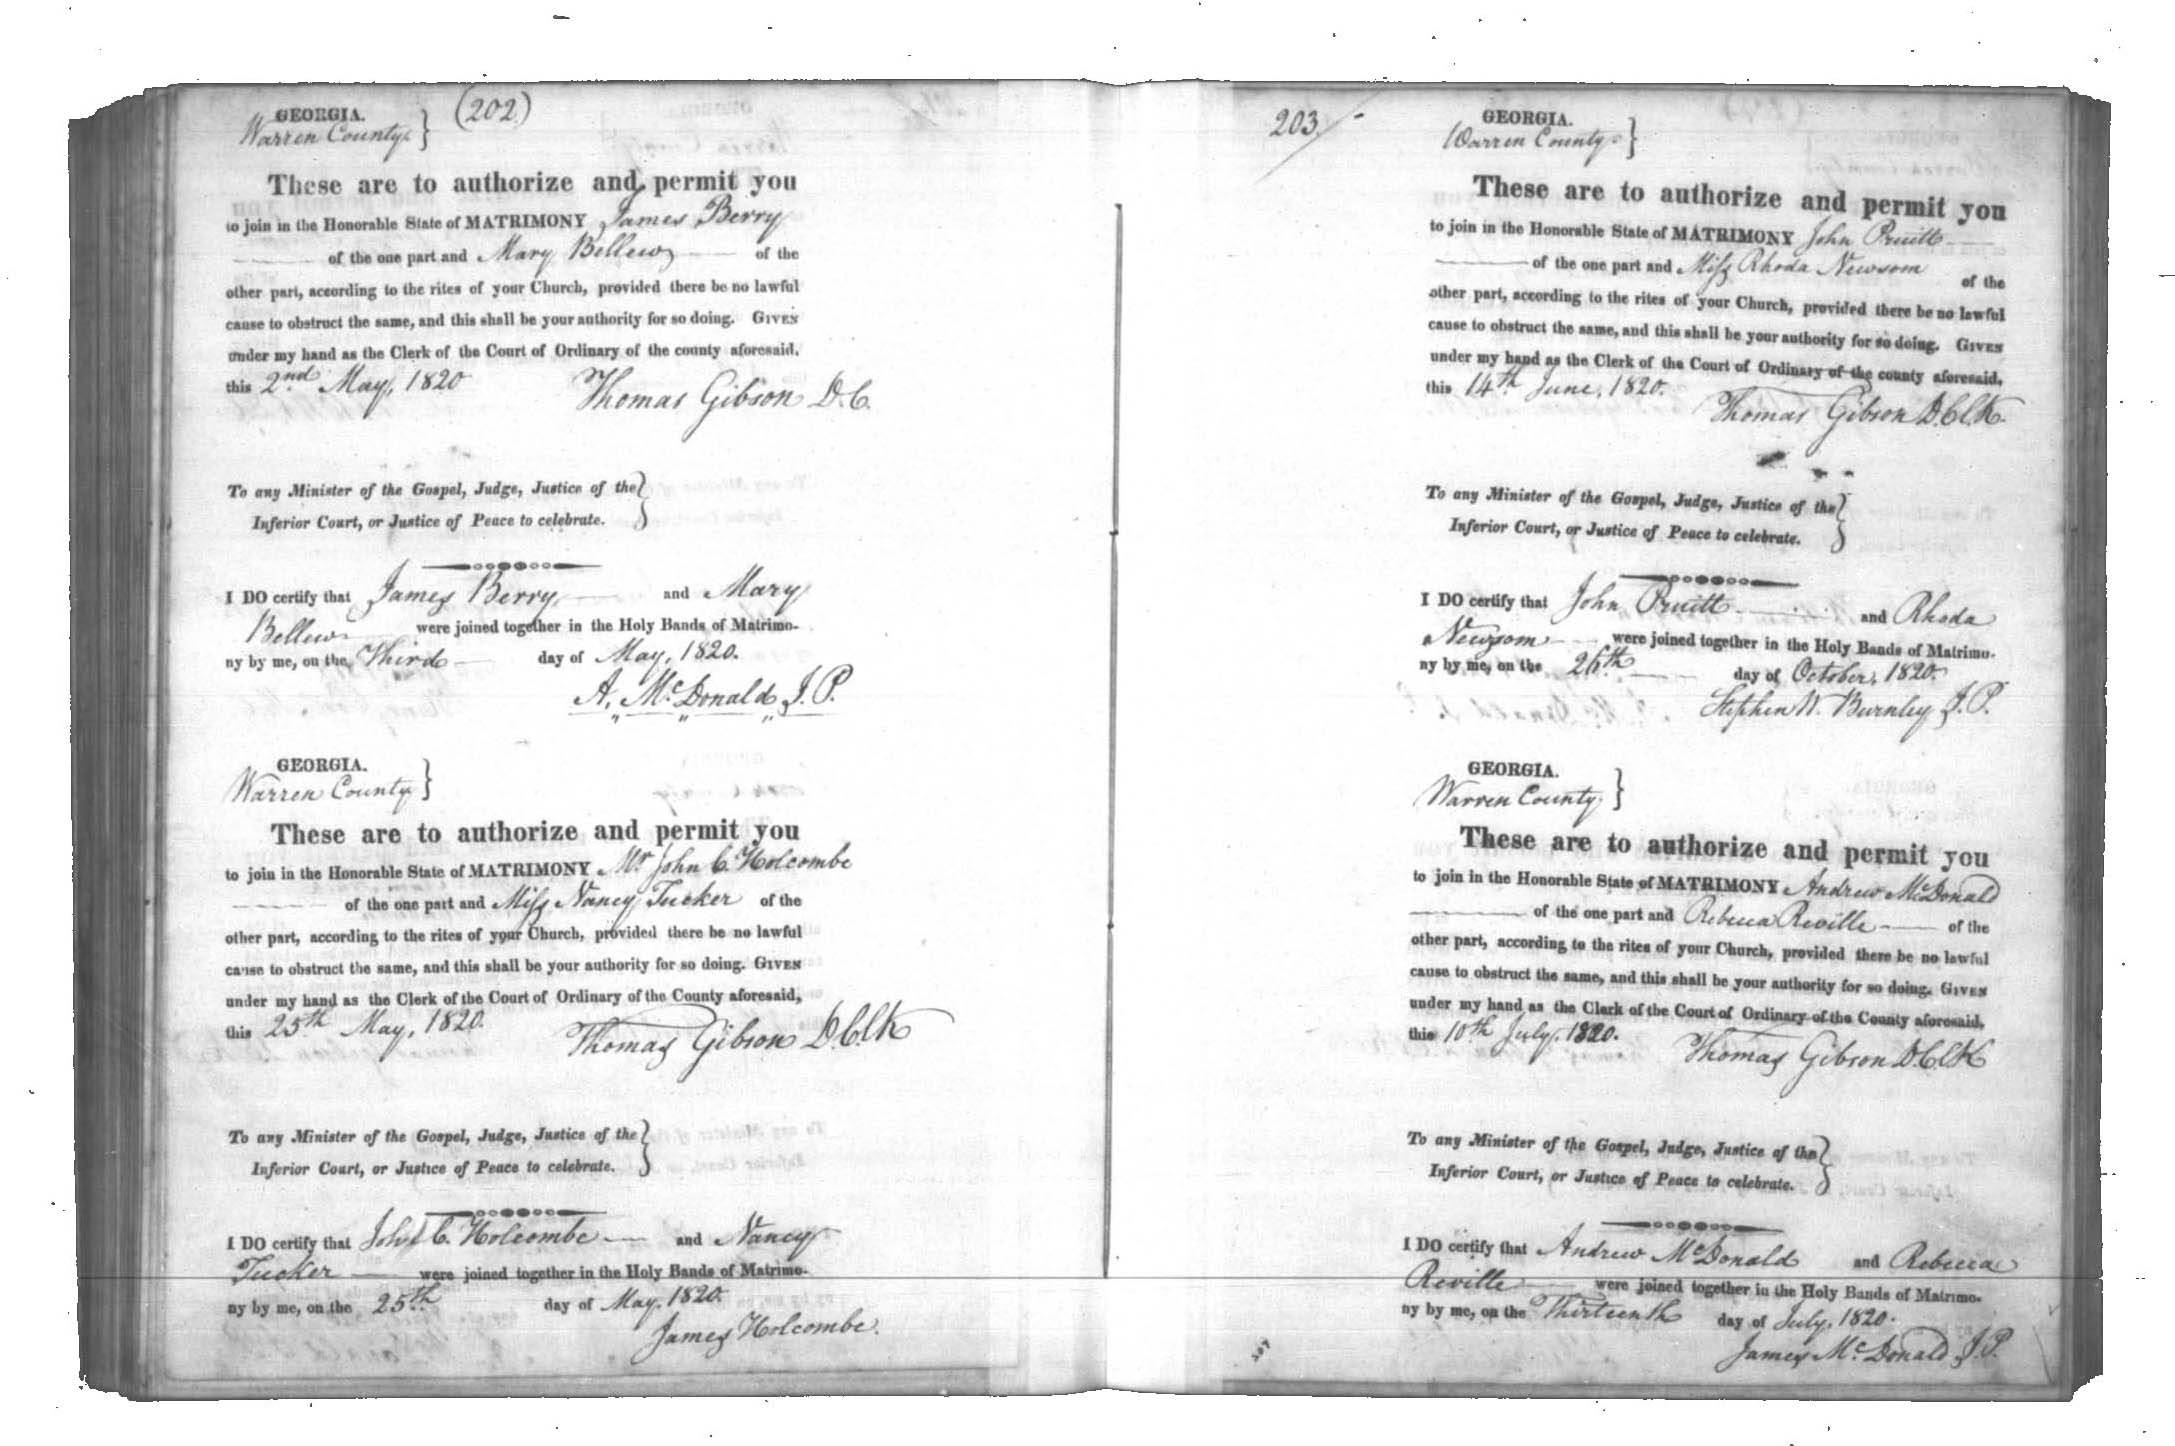 (202)
GEORGIA.
Warren County }
These are to authorize and permit you
to join in the Honorable State of MATRIMONY James Berry
of the one part and Mary Bellew of the
other part, according to the rites of your Church, provided there be no lawful
cause to obstruct the same, and this shall be your authority for so doing. GIVEN
under my hand as the Clerk of the Court of Ordinary of the county aforesaid,
this 2nd May, 1820
Thomas Gibson D.C.
To any Minister of the Gospel, Judge, Justice of the }
Inferior Court, or Justice of Peace to celebrate.
I DO certify that James Berry and Mary
Bellew were joined together in the Holy Bands of Matrimo-
ny by me, on the Third day of May, 1820.
A. McDonald J.P.
GEORGIA.
Warren County }
These are to authorize and permit you
to join in the Honorable State of MATRIMONY Mr John C. Holcombe
of the one part and Miss Nancy Tucker of the
other part, according to the rites of your Church, provided there be no lawful
cause to obstruct the same, and this shall be your authority for so doing. GIVEN
under my hand as the Clerk of the Court of Ordinary of the County aforesaid,
this 25th May, 1820.
Thomas Gibson D.ClK
To any Minister of the Gospel, Judge, Justice of the }
Inferior Court, or Justice of Peace to celebrate.
I DO certify that John C. Holcombe and Nancy
Tucker were joined together in the Holy Bands of Matrimo-
ny by me, on the 25th day of May, 1820.
James Holcombe.
203.
GEORGIA.
Warren County }
These are to authorize and permit you
to join in the Honorable State of MATRIMONY John Pruitt
of the one part and Miss Rhoda Newsom of the
other part, according to the rites of your Church, provided there be no lawful
cause to obstruct the same, and this shall be your authority for so doing. GIVEN
under my hand as the Clerk of the Court of Ordinary of the county aforesaid,
this 14th June, 1820.
Thomas Gibson D.ClK.
To any Minister of the Gospel, Judge, Justice of the }
Inferior Court, or Justice of Peace to celebrate.
I DO certify that John Pruitt and Rhoda
Newsom were joined together in the Holy Bands of Matrimo-
ny by me, on the 26th day of October, 1820.
Stephen W. Burnley J.P.
GEORGIA.
Warren County }
These are to authorize and permit you
to join in the Honorable State of MATRIMONY Andrew McDonald
of the one part and Rebecca Reville of the
other part, according to the rites of your Church, provided there be no lawful
cause to obstruct the same, and this shall be your authority for so doing. GIVEN
under my hand as the Clerk of the Court of Ordinary of the County aforesaid,
this 10th July, 1820.
Thomas Gibson D.ClK
To any Minister of the Gospel, Judge, Justice of the }
Inferior Court, or Justice of Peace to celebrate.
I DO certify that Andrew McDonald and Rebecca
Reville were joined together in the Holy Bands of Matrimo-
ny by me, on the Thirteenth day of July, 1820.
James McDonald J.P.